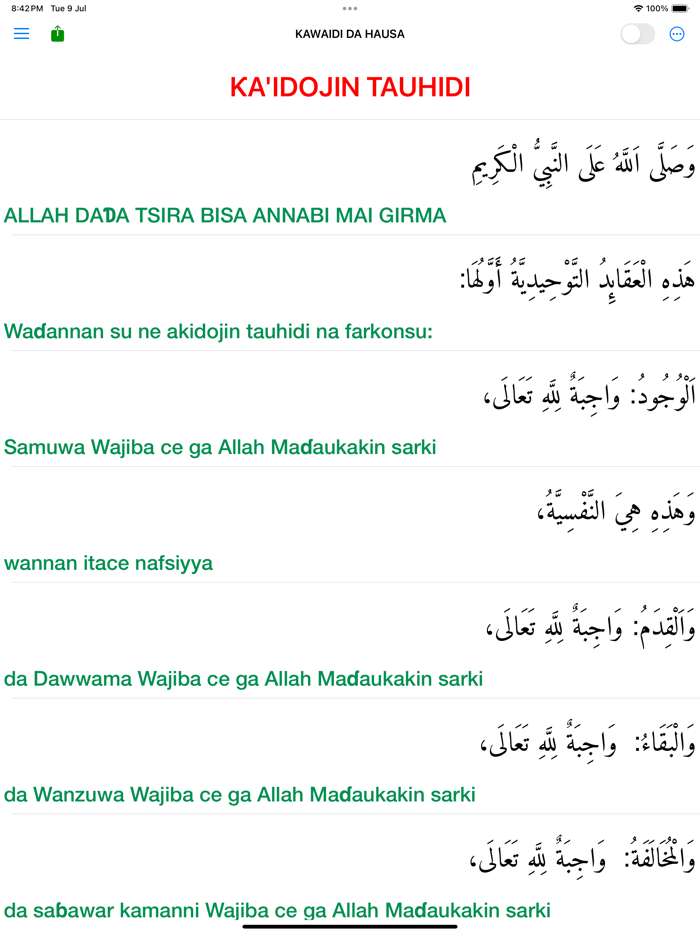 8:42 PM Tue 9 Jul
100%
KAWAIDI DA HAUSA
KA'IDOJIN TAUHIDI
وَصَلَّى اَللَّهُ عَلَى النَّبِيُّ الْكَرِيمِ
ALLAH DAƊA TSIRA BISA ANNABI MAI GIRMA
هَذِهِ الْعَقَايِدُ التَّوْحِيدِيَّةُ أَوَّلُهَا:
Waɗannan su ne akidojin tauhidi na farkonsu:
اَلْوُجُودُ: وَاجِبَةٌ لِلَّهِ تَعَالَى،
Samuwa Wajiba ce ga Allah Maɗaukakin sarki
وَهَذِهِ هِيَ النَّفْسِيَّةُ،
wannan itace nafsiyya
وَاَلْقِدَمُ: وَاجِبَةٌ لِلَّهِ تَعَالَى،
da Dawwama Wajiba ce ga Allah Maɗaukakin sarki
وَالْبَقَاءُ: وَاجِبَةٌ لِلَّهِ تَعَالَى،
da Wanzuwa Wajiba ce ga Allah Maɗaukakin sarki
وَالْمُخَالَفَةُ: وَاجِبَةٌ لِلَّهِ تَعَالَى،
da saɓawar kamanni Wajiba ce ga Allah Maɗaukakin sarki